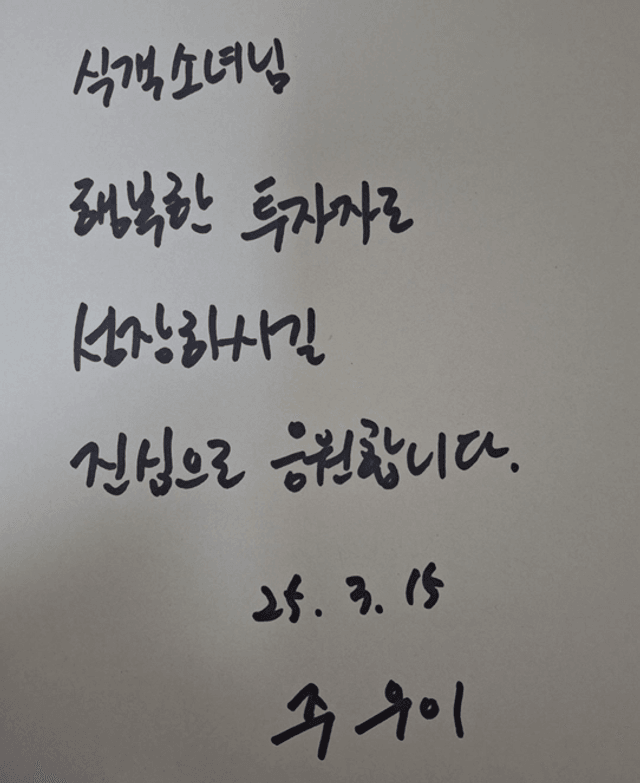 식객소녀님
행복한 투자자로
성장하시길
진심으로 응원합니다.
25. 3. 15
주우이